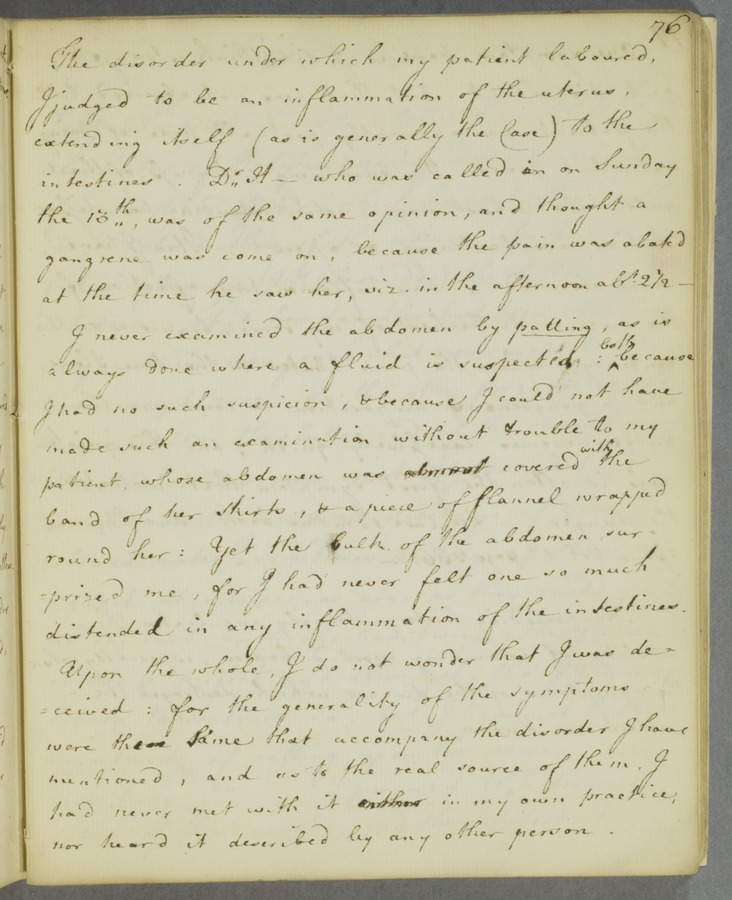 76
The disorder under which my patient laboured,
I judged to be an inflammation of the uterus,
extending itself (as is generally the Case) to the
intestines. Dr. H— who was called in on Sunday
the 13th, was of the same opinion, and thought a
gangrene was come on, because the pain was abated
at the time he saw her, viz. in the afternoon abt. 2½—
I never examined the abdomen by patting, as is
always done where a fluid is suspected: both because
I had no such suspicion, & because I could not have
made such an examination without trouble to my
patient, whose abdomen was almost covered with the
band of her skirts, & a piece of flannel wrapped
round her: Yet the bulk of the abdomen sur=
=prized me, for I had never felt one so much
distended in any inflammation of the intestines.
Upon the whole, I do not wonder that I was de=
=ceived: for the generality of the symptoms
were the same that accompany the disorder I have
mentioned, and as to the real source of them, I
had never met with it either in my own practice,
nor heard it described by any other person.